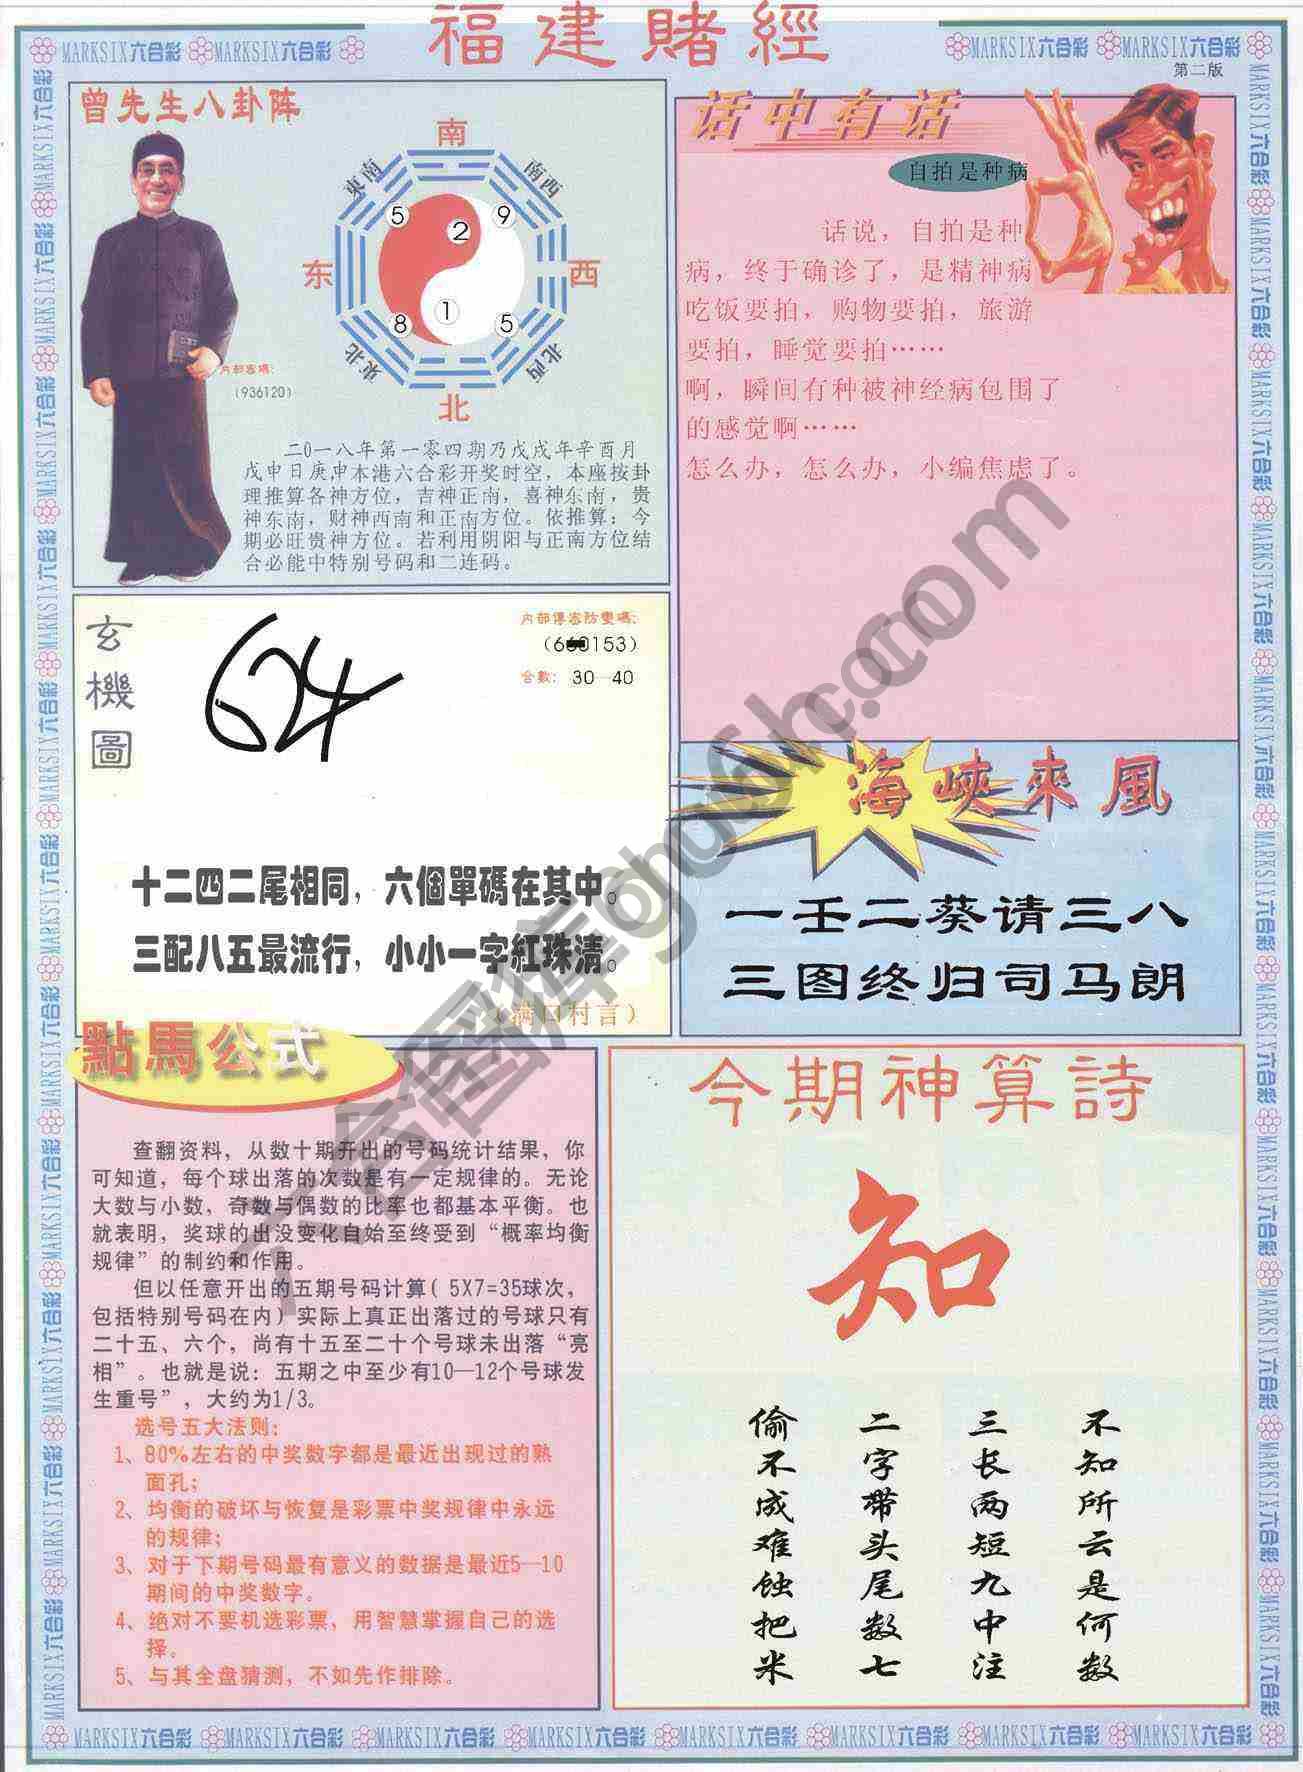 福建賭經
MARKSIX六合彩 MARKSIX六合彩
MARKSIX六合彩 MARKSIX六合彩
第二版
曾先生八卦阵
南
東南
南西
5
2
9
东
西
8
1
5
東北
北西
北
内部密碼:
(936120)
二0一八年第一零四期乃戊戌年辛酉月
戊申日庚申本港六合彩开奖时空，本座按卦
理推算各神方位，吉神正南，喜神东南，贵
神东南，财神西南和正南方位。依推算：今
期必旺贵神方位。若利用阴阳与正南方位结
合必能中特别号码和二连码。
话中有话
自拍是种病
话说，自拍是种
病，终于确诊了，是精神病
吃饭要拍，购物要拍，旅游
要拍，睡觉要拍……
啊，瞬间有种被神经病包围了
的感觉啊……
怎么办，怎么办，小编焦虑了。
玄機圖
内部傳密防變碼:
合數: 30—40
十二四二尾相同，六個單碼在其中。
三配八五最流行，小小一字紅珠清。
(满口村言)
海峽來風
一壬二葵请三八
三图终归司马朗
點馬公式
查翻资料，从数十期开出的号码统计结果，你
可知道，每个球出落的次数是有一定规律的。无论
大数与小数，奇数与偶数的比率也都基本平衡。也
就表明，奖球的出没变化自始至终受到“概率均衡
规律”的制约和作用。
但以任意开出的五期号码计算( 5X7=35球次，
包括特别号码在内) 实际上真正出落过的号球只有
二十五、六个，尚有十五至二十个号球未出落“亮
相”。也就是说：五期之中至少有10—12个号球发
生重号”，大约为1/3。
选号五大法则:
1、80%左右的中奖数字都是最近出现过的熟
面孔;
2、均衡的破坏与恢复是彩票中奖规律中永远
的规律;
3、对于下期号码最有意义的数据是最近5—10
期间的中奖数字。
4、绝对不要机选彩票，用智慧掌握自己的选
择。
5、与其全盘猜测，不如先作排除。
今期神算詩
知
不知所云是何数
三长两短九中注
二字带头尾数七
偷不成难蚀把米
MARKSIX六合彩 MARKSIX六合彩 MARKSIX六合彩 MARKSIX六合彩 MARKSIX六合彩 MARKSIX六合彩 MARKSIX六合彩 MARKSIX六合彩